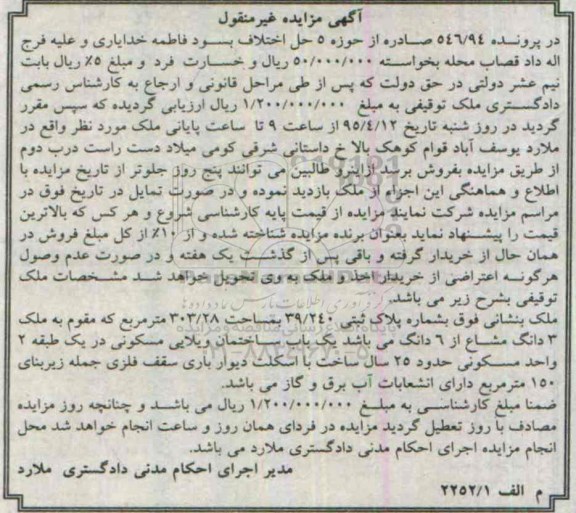 آگهی مزایده غیرمنقول
در پرونده ۵۴۶/۹۴ صادره از حوزه ۵ حل اختلاف بسود فاطمه خدایاری و علیه فرج
اله داد قصاب محله بخواسته ۵۰/۰۰۰/۰۰۰ ریال و خسارت فرد و مبلغ ۵٪ ریال بابت
نیم عشر دولتی در حق دولت که پس از طی مراحل قانونی و ارجاع به کارشناس رسمی
دادگستری ملک توقیفی به مبلغ ۱/۲۰۰/۰۰۰/۰۰۰ ریال ارزیابی گردیده که سپس مقرر
گردید در روز شنبه تاریخ ۹۵/۴/۱۲ از ساعت ۹ تا ساعت پایانی ملک مورد نظر واقع در
ملارد یوسف آباد قوام کوهک بالا خ داستانی شرقی کومی میلاد دست راست درب دوم
از طریق مزایده بفروش برسد ازاینرو طالبین می توانند پنج روز جلوتر از تاریخ مزایده با
اطلاع و هماهنگی این اجراء از ملک بازدید نموده و در صورت تمایل در تاریخ فوق در
مراسم مزایده شرکت نمایند مزایده از قیمت پایه کارشناسی شروع و هر کس که بالاترین
قیمت را پیشنهاد نماید بعنوان برنده مزایده شناخته شده و از ۱۰٪ از کل مبلغ فروش در
همان حال از خریدار گرفته و باقی پس از گذشت یک هفته و در صورت عدم وصول
هرگونه اعتراضی از خریدار اخذ و ملک به وی تحویل خواهد شد مشخصات ملک
توقیفی بشرح زیر می باشد.
ملک بنشانی فوق بشماره پلاک ثبتی ۳۹/۲۴۰ بمساحت ۳۰۳/۲۸ مترمربع که مقوم به ملک
۳ دانگ مشاع از ۶ دانگ می باشد یک باب ساختمان ویلایی مسکونی در یک طبقه ۲
واحد مسکونی حدود ۲۵ سال ساخت با اسکلت دیوار باری سقف فلزی جمله زیربنای
۱۵۰ مترمربع دارای انشعابات آب برق و گاز می باشد.
ضمنا مبلغ کارشناسی به مبلغ ۱/۲۰۰/۰۰۰/۰۰۰ ریال می باشد و چنانچه روز مزایده
مصادف با روز تعطیل گردید مزایده در فردای همان روز و ساعت انجام خواهد شد محل
انجام مزایده اجرای احکام مدنی دادگستری ملارد می باشد.
مدیر اجرای احکام مدنی دادگستری ملارد
م الف ۲۲۵۲/۱